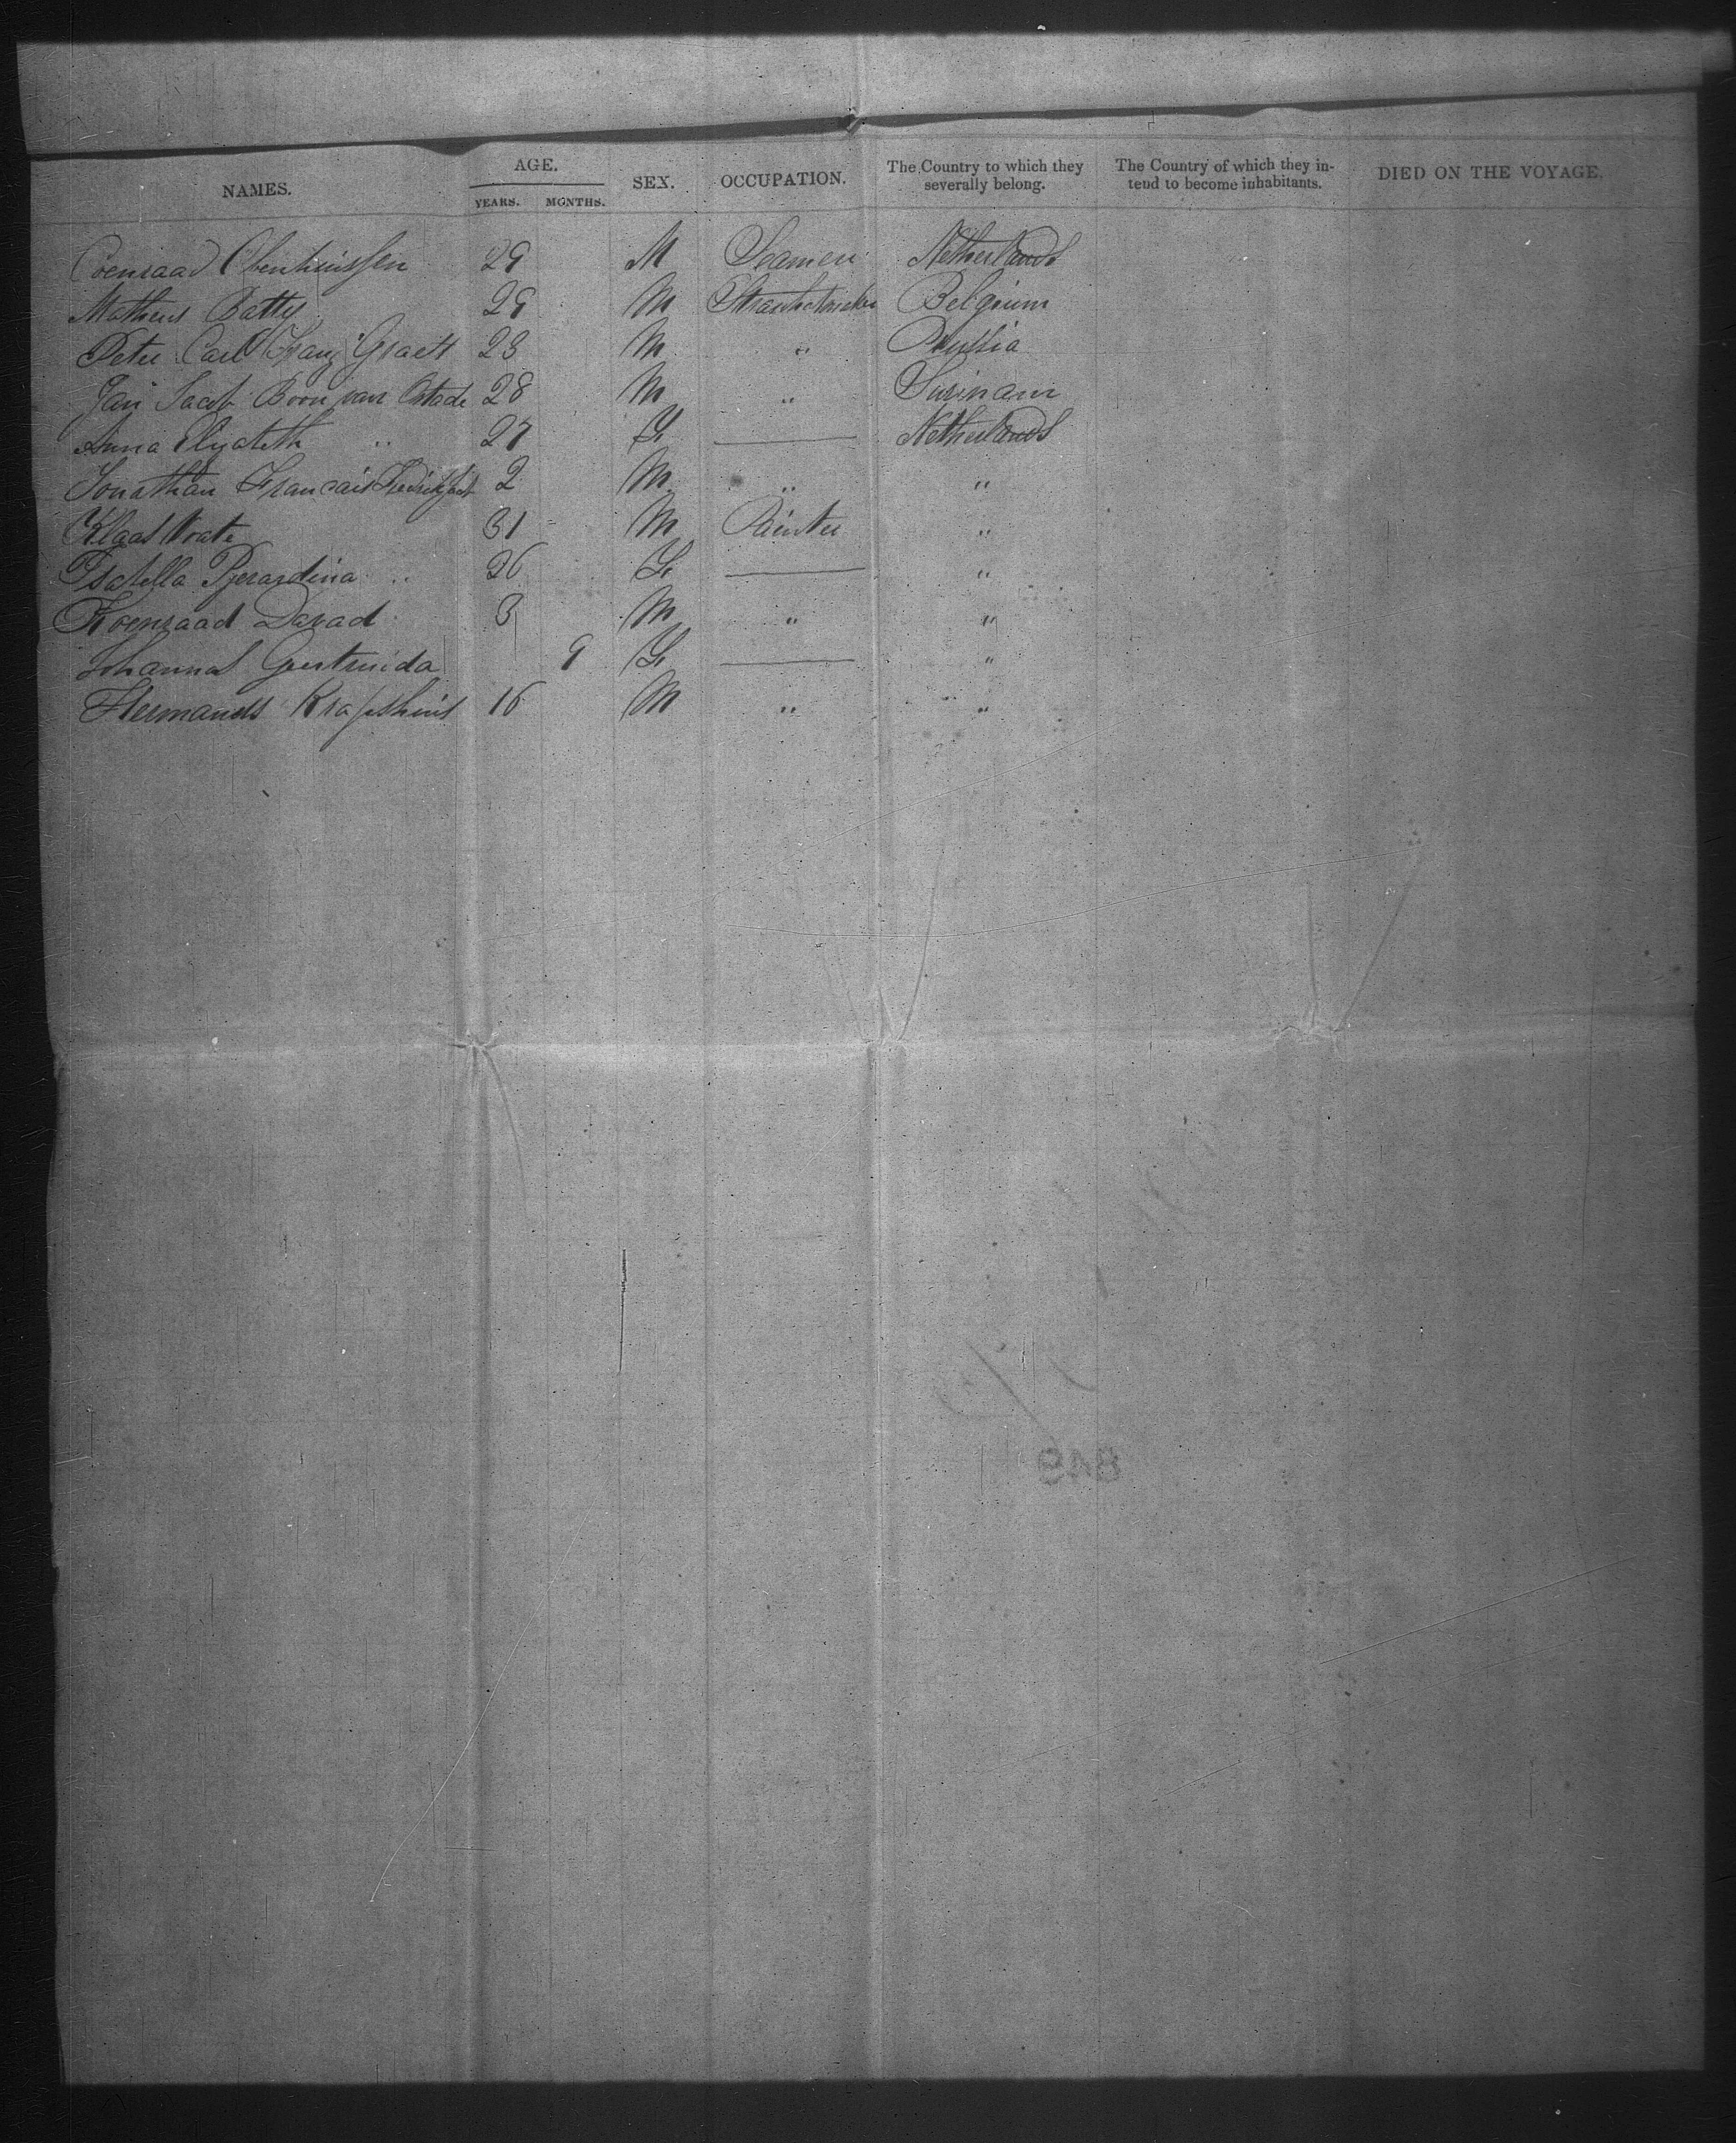 NAMES. AGE. YEARS. MONTHS. SEX. OCCUPATION. The Country to which they severally belong. The Country of which they intend to become inhabitants. DIED ON THE VOYAGE.
Coenraad 29 M Seamen Netherlands
Matheus Batty 29 M Belgium
Peter Carl Franz Graett 28 M " Prussia
Jan Jacob Boon van Ostade 28 M " Surinam
Anna Elyabeth " 27 F Netherlands
Jonathan Francais 2 M " "
Klaas Vrate 31 M Painter "
Isabella Pjerardina " 26 F "
Koenraad David 3 M " "
Johanna Geertruida 9 F "
Hermanus 16 M " "
849